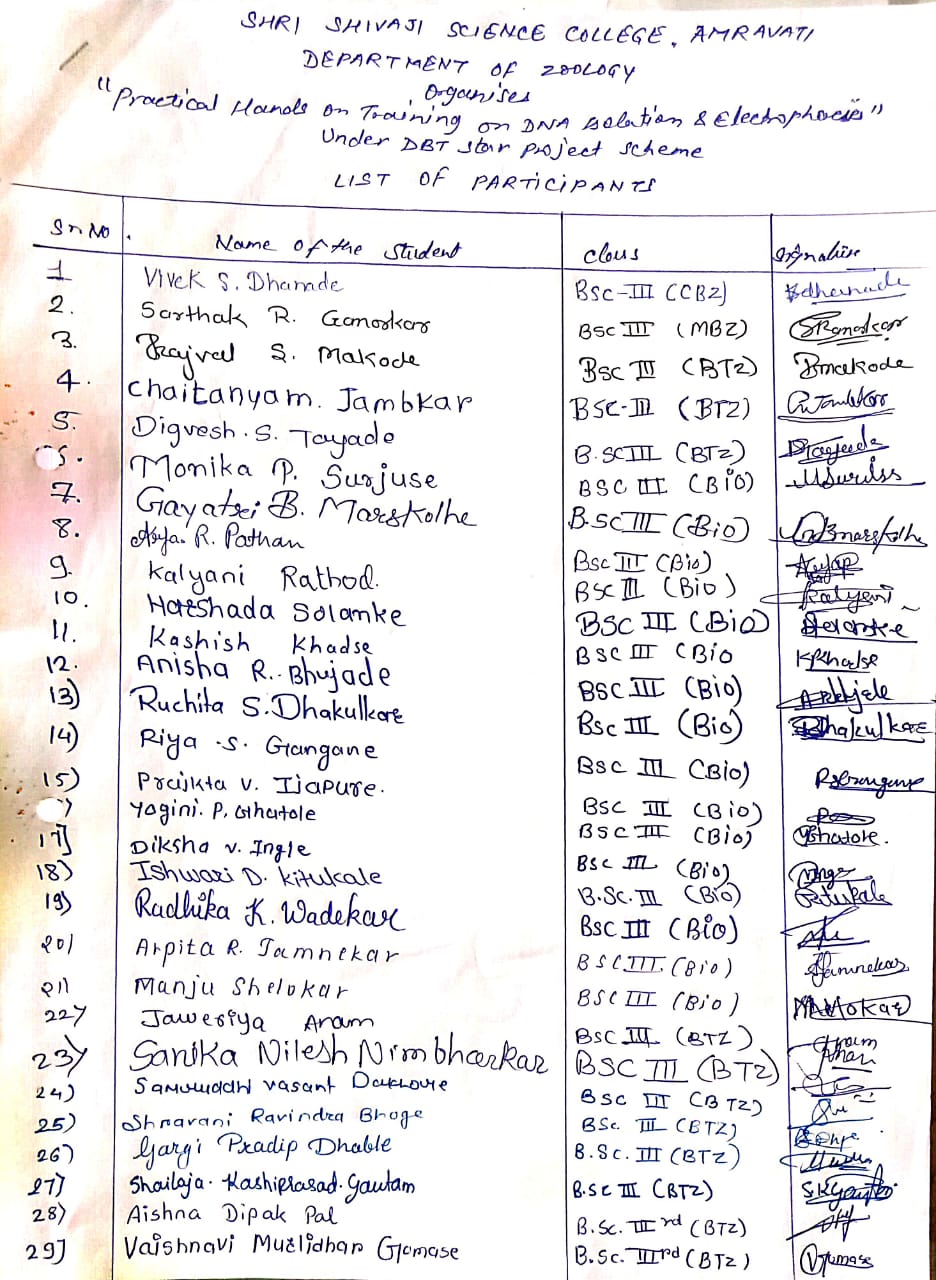 SHRI SHIVAJI SCIENCE COLLEGE, AMRAVATI
DEPARTMENT OF ZOOLOGY
Organises
"Practical Hands on Training on DNA Isolation & Electrophoresis"
Under DBT Star Project Scheme
LIST OF PARTICIPANTS
Sr No. Name of the Student Class Signature
1 Vivek S. Dhamde BSC-III (CCBZ) Sdhamde
2. Sarthak R. Ganorkar BSC III (MBZ) SRGanorkar
3. Prajval S. Makode BSC III (BTZ) Pmakode
4. Chaitanya m. Jambkar BSC-III (BTZ)
5. Digvesh. S. Tayade B.SC III (BTZ)
6. Monika P. Surjuse BSC III (BIO)
7. Gayatri B. Marskolhe B.SC III (Bio) GBmarskolhe
8. Asya. R. Pathan BSC III (Bio)
9. Kalyani Rathod. BSC III (Bio) Kalyani
10. Harshada Solanke BSC III (Bio) Solanke
11. Kashish Khadse BSC III (Bio KKhadse
12. Anisha R. Bhujade BSC III (Bio)
13) Ruchita S. Dhakulkar BSC III (Bio) Dhakulkar
14) Riya .S. Gangane BSC III (Bio) RSGangane
15) Prajkta V. Ijapure. BSC III (Bio)
) Yogini. P. Ghatole BSC III (Bio) YGhatole.
17] Diksha V. Ingle BSC III (Bio)
18) Ishwari D. Kitukale B.Sc. III (Bio) Kitukale
19) Radhika K. Wadekar BSC III (Bio)
20) Arpita R. Jamnekar BSC III. (Bio) Jamnekar
21) Manju Shelokar BSC III (Bio)
22) Jaweriya Aram BSC III (BTZ)
23) Sanika Nilesh Nimbharkar BSC III (BTZ)
24) Samruddhi Vasant BSC III (BTZ)
25) Shravani Ravindra Bhoge BSC III (BTZ)
26) Gargi Pradip Dhable B.Sc. III (BTZ)
27) Shailaja. Kashiprasad. Gautam B.SC III (BTZ) SKGautam
28) Aishna Dipak Pal B.Sc. IIIrd (BTZ)
29] Vaishnavi Murlidhar Gomase B.Sc. IIIrd (BTZ) VGomase